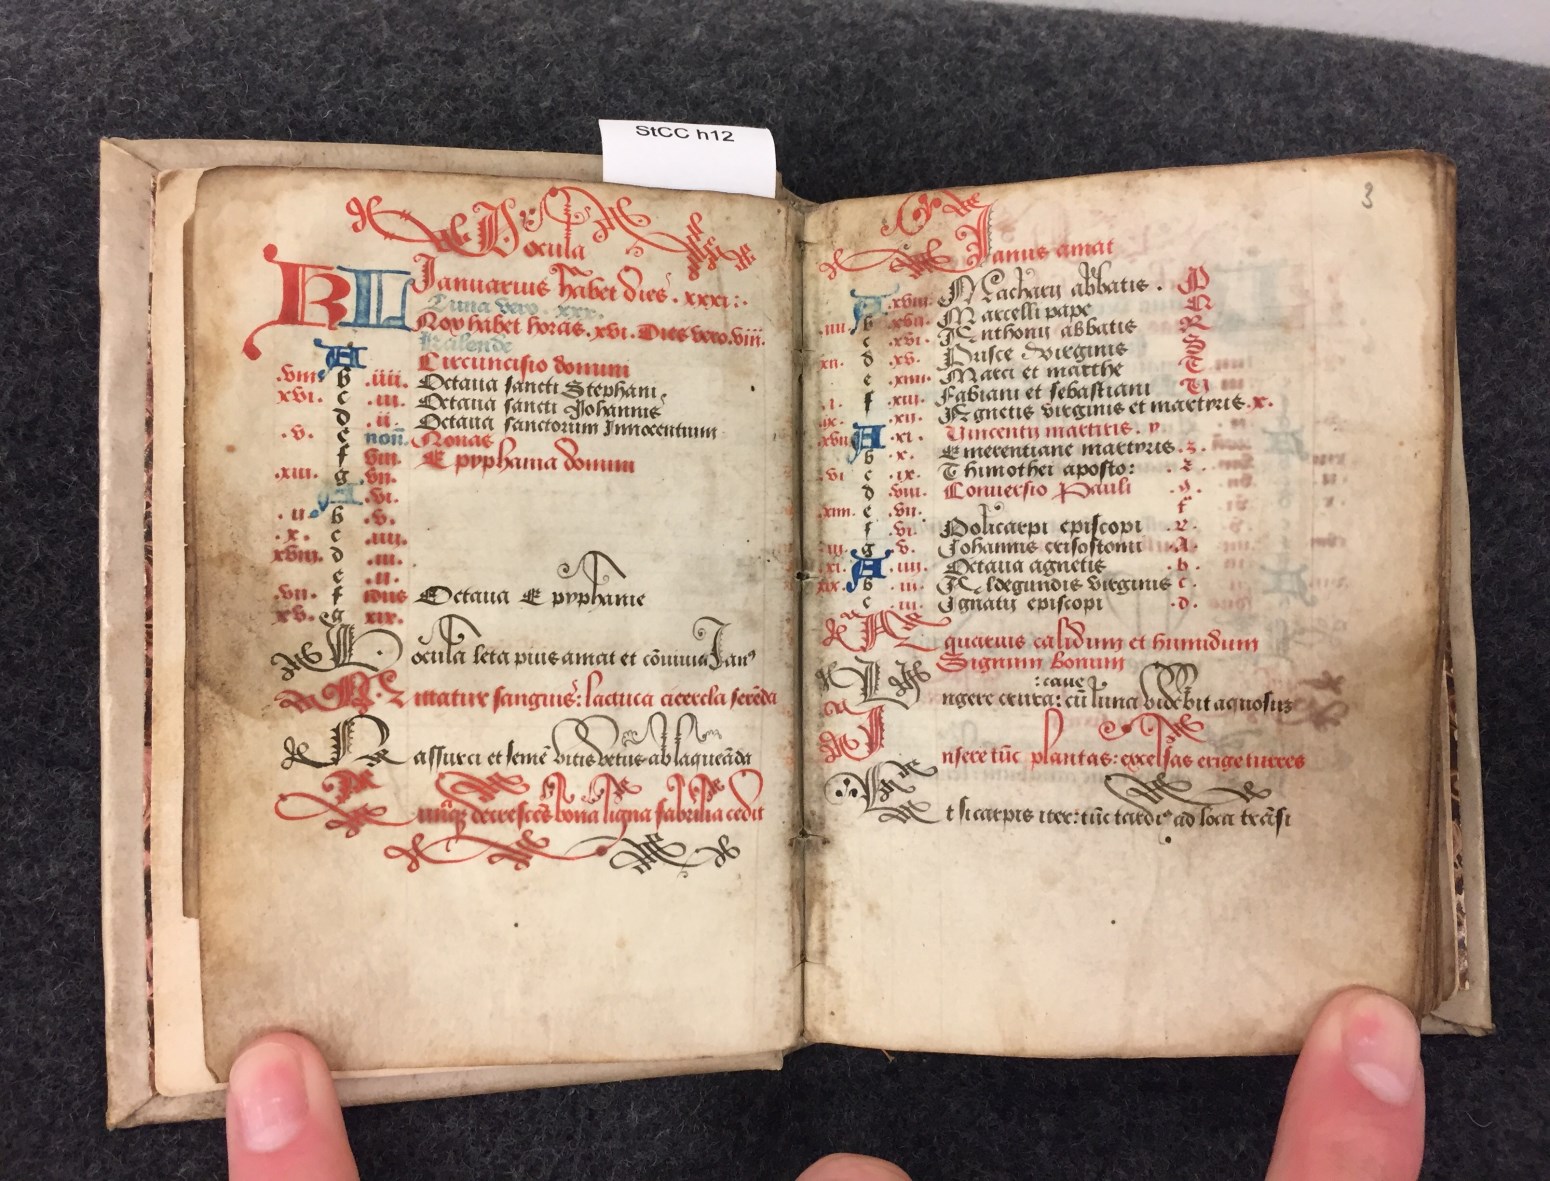 StCC h12
Pocula
KL Januarius habet dies . xxxi :.
Luna vero . xxx.
Nox habet horas . xvi . Dies vero . viii.
Kalende
A Circuncisio domini
.viii. b .iiii. Octaua sancti Stephani
xvi. c .iii. Octaua sancti Johannis
d .ii. Octaua sanctorum Innocentium
.v. e non. Nonas
f viii. Epyphania domini
.xiii. g .vii.
A .vi.
.ii. b .v.
.x. c .iiii.
xviii. d .iii.
e .ii.
.vii. f idus Octaua Epyphanie
xv. g xix.
ocula leta pius amat et
matur sanguis: lactuca cicercla
assurci et vitis vetus
decrescēs bona ligna fabrilia cedit
3
Janus amat
A .xviii. Macharij abbatis . P
.iiii. b .xvii. Marcelli pape
c .xvi. Anthonij abbatis R
.xii. d .xv. Prisce virginis S
e .xiiii. Marci et marthe T
.i. f .xiii. Fabiani et sebastiani
.ix. g .xii. Agnetis virginis et martyris . x.
xvii A .xi. Vincentij martiris . y
b .x. Emerentiane martyris . z.
.vi c .ix. Thimothei aposto:
d .viii. Conuersio Pauli
.xiiii. e .vii. f
f .vi. Policarpi episcopi
.iii. g .v. Johannis crisostomi
.xi. A .iiii. Octaua agnetis .b.
.xix. b .iii. Aldegundis virginis c.
c .iii. Ignatij episcopi .d.
quarius calidum et humidum
Signum bonum
: caue
ngere crura: cū luna videbit aquosus
nsere tūc plantas: excelsas erige turres
t si carpis iter: tūc tardi⁹ ad loca trāsi